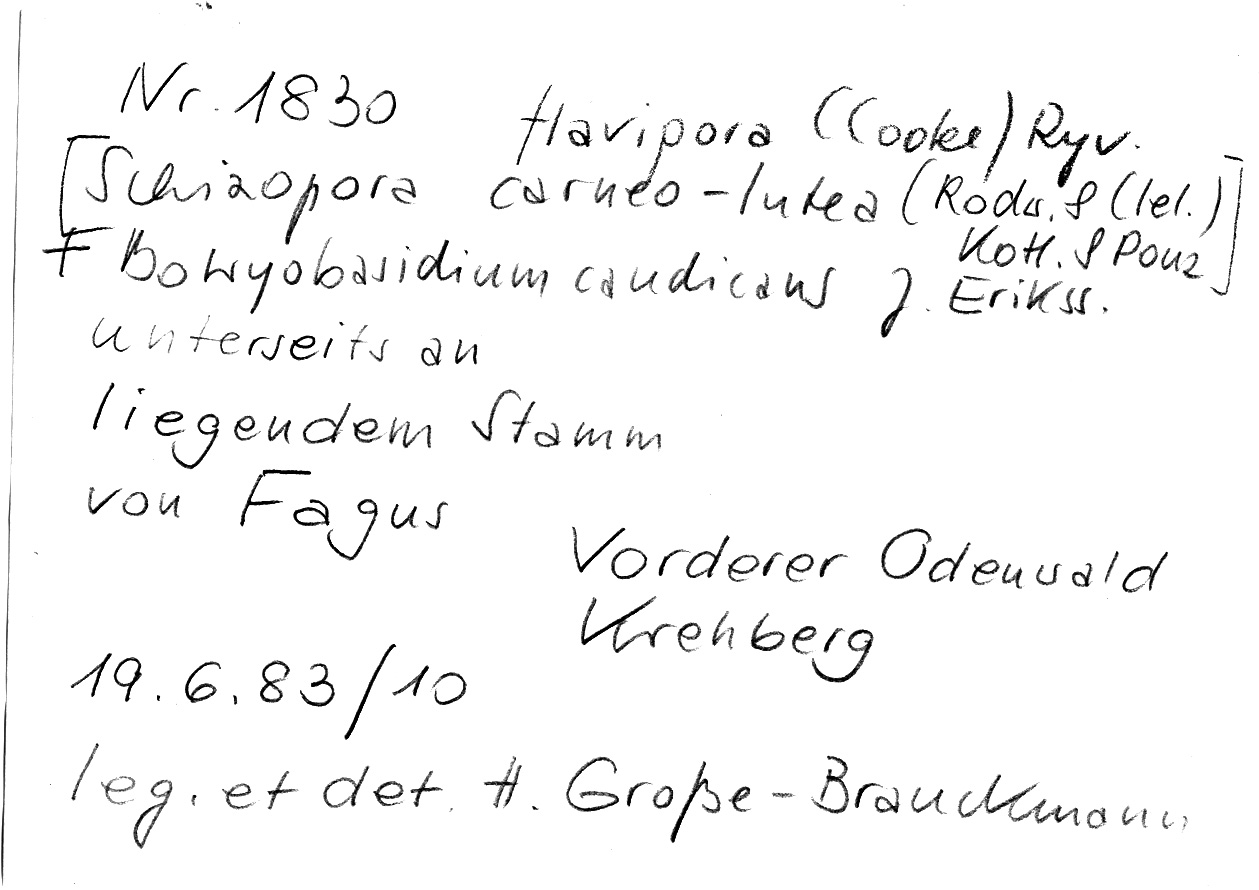 Nr. 1830 flavipora (Cooke) Ryv.
[Schizopora carneo-lutea (Rodw. & Clel.)
Kotl. & Pouz]
+ Botryobasidium candicans J. Erikss.
unterseits an
liegendem Stamm
von Fagus
Vorderer Odenwald
Krehberg
19.6.83/10
leg. et det. H. Große-Brauckmann